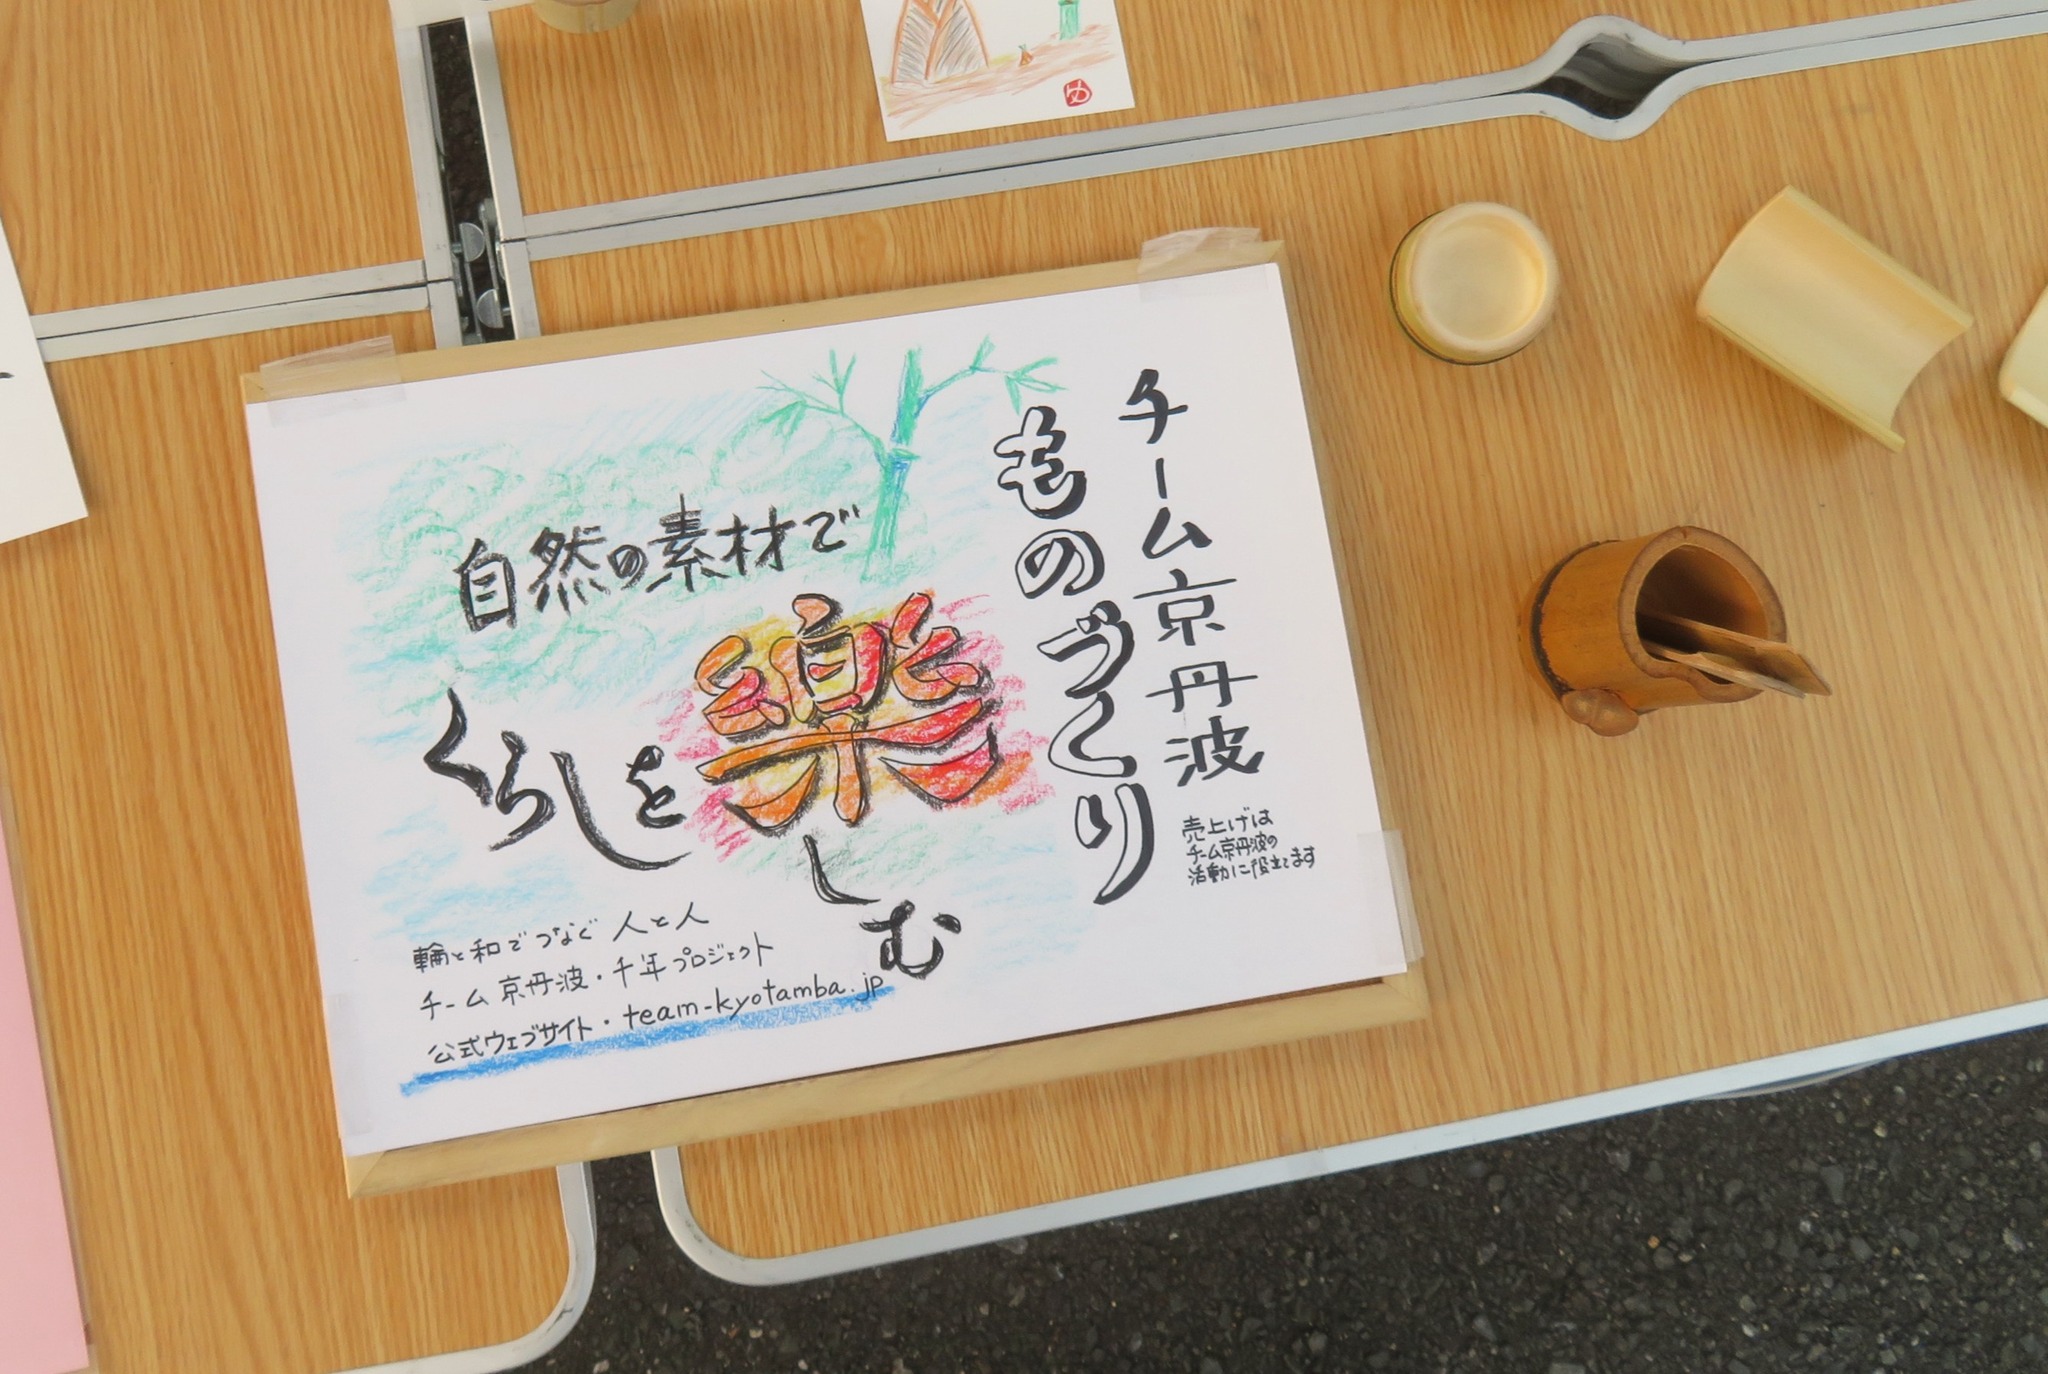 チーム京丹波
ものづくり
売上げは
チーム京丹波の
活動に役立てます
自然の素材で
くらしを
楽しむ
輪と和でつなぐ 人と人
チーム京丹波・千年プロジェクト
公式ウェブサイト・team-kyotamba.jp